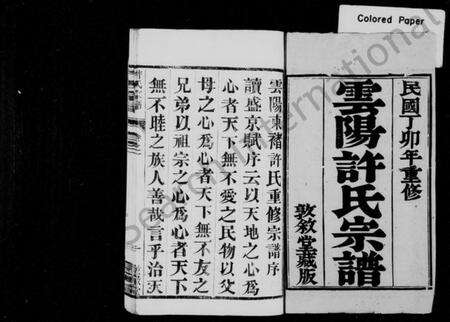 Colored Paper
民國丁卯年重修
雲陽許氏宗譜
敦敘堂藏版
雲陽東禇許氏重修宗譜序
讀盛京賦序云以天地之心爲
心者天下無不愛之民物以父
母之心爲心者天下無不友之
兄弟以祖宗之心爲心者天下
無不睦之族人善哉言乎治天